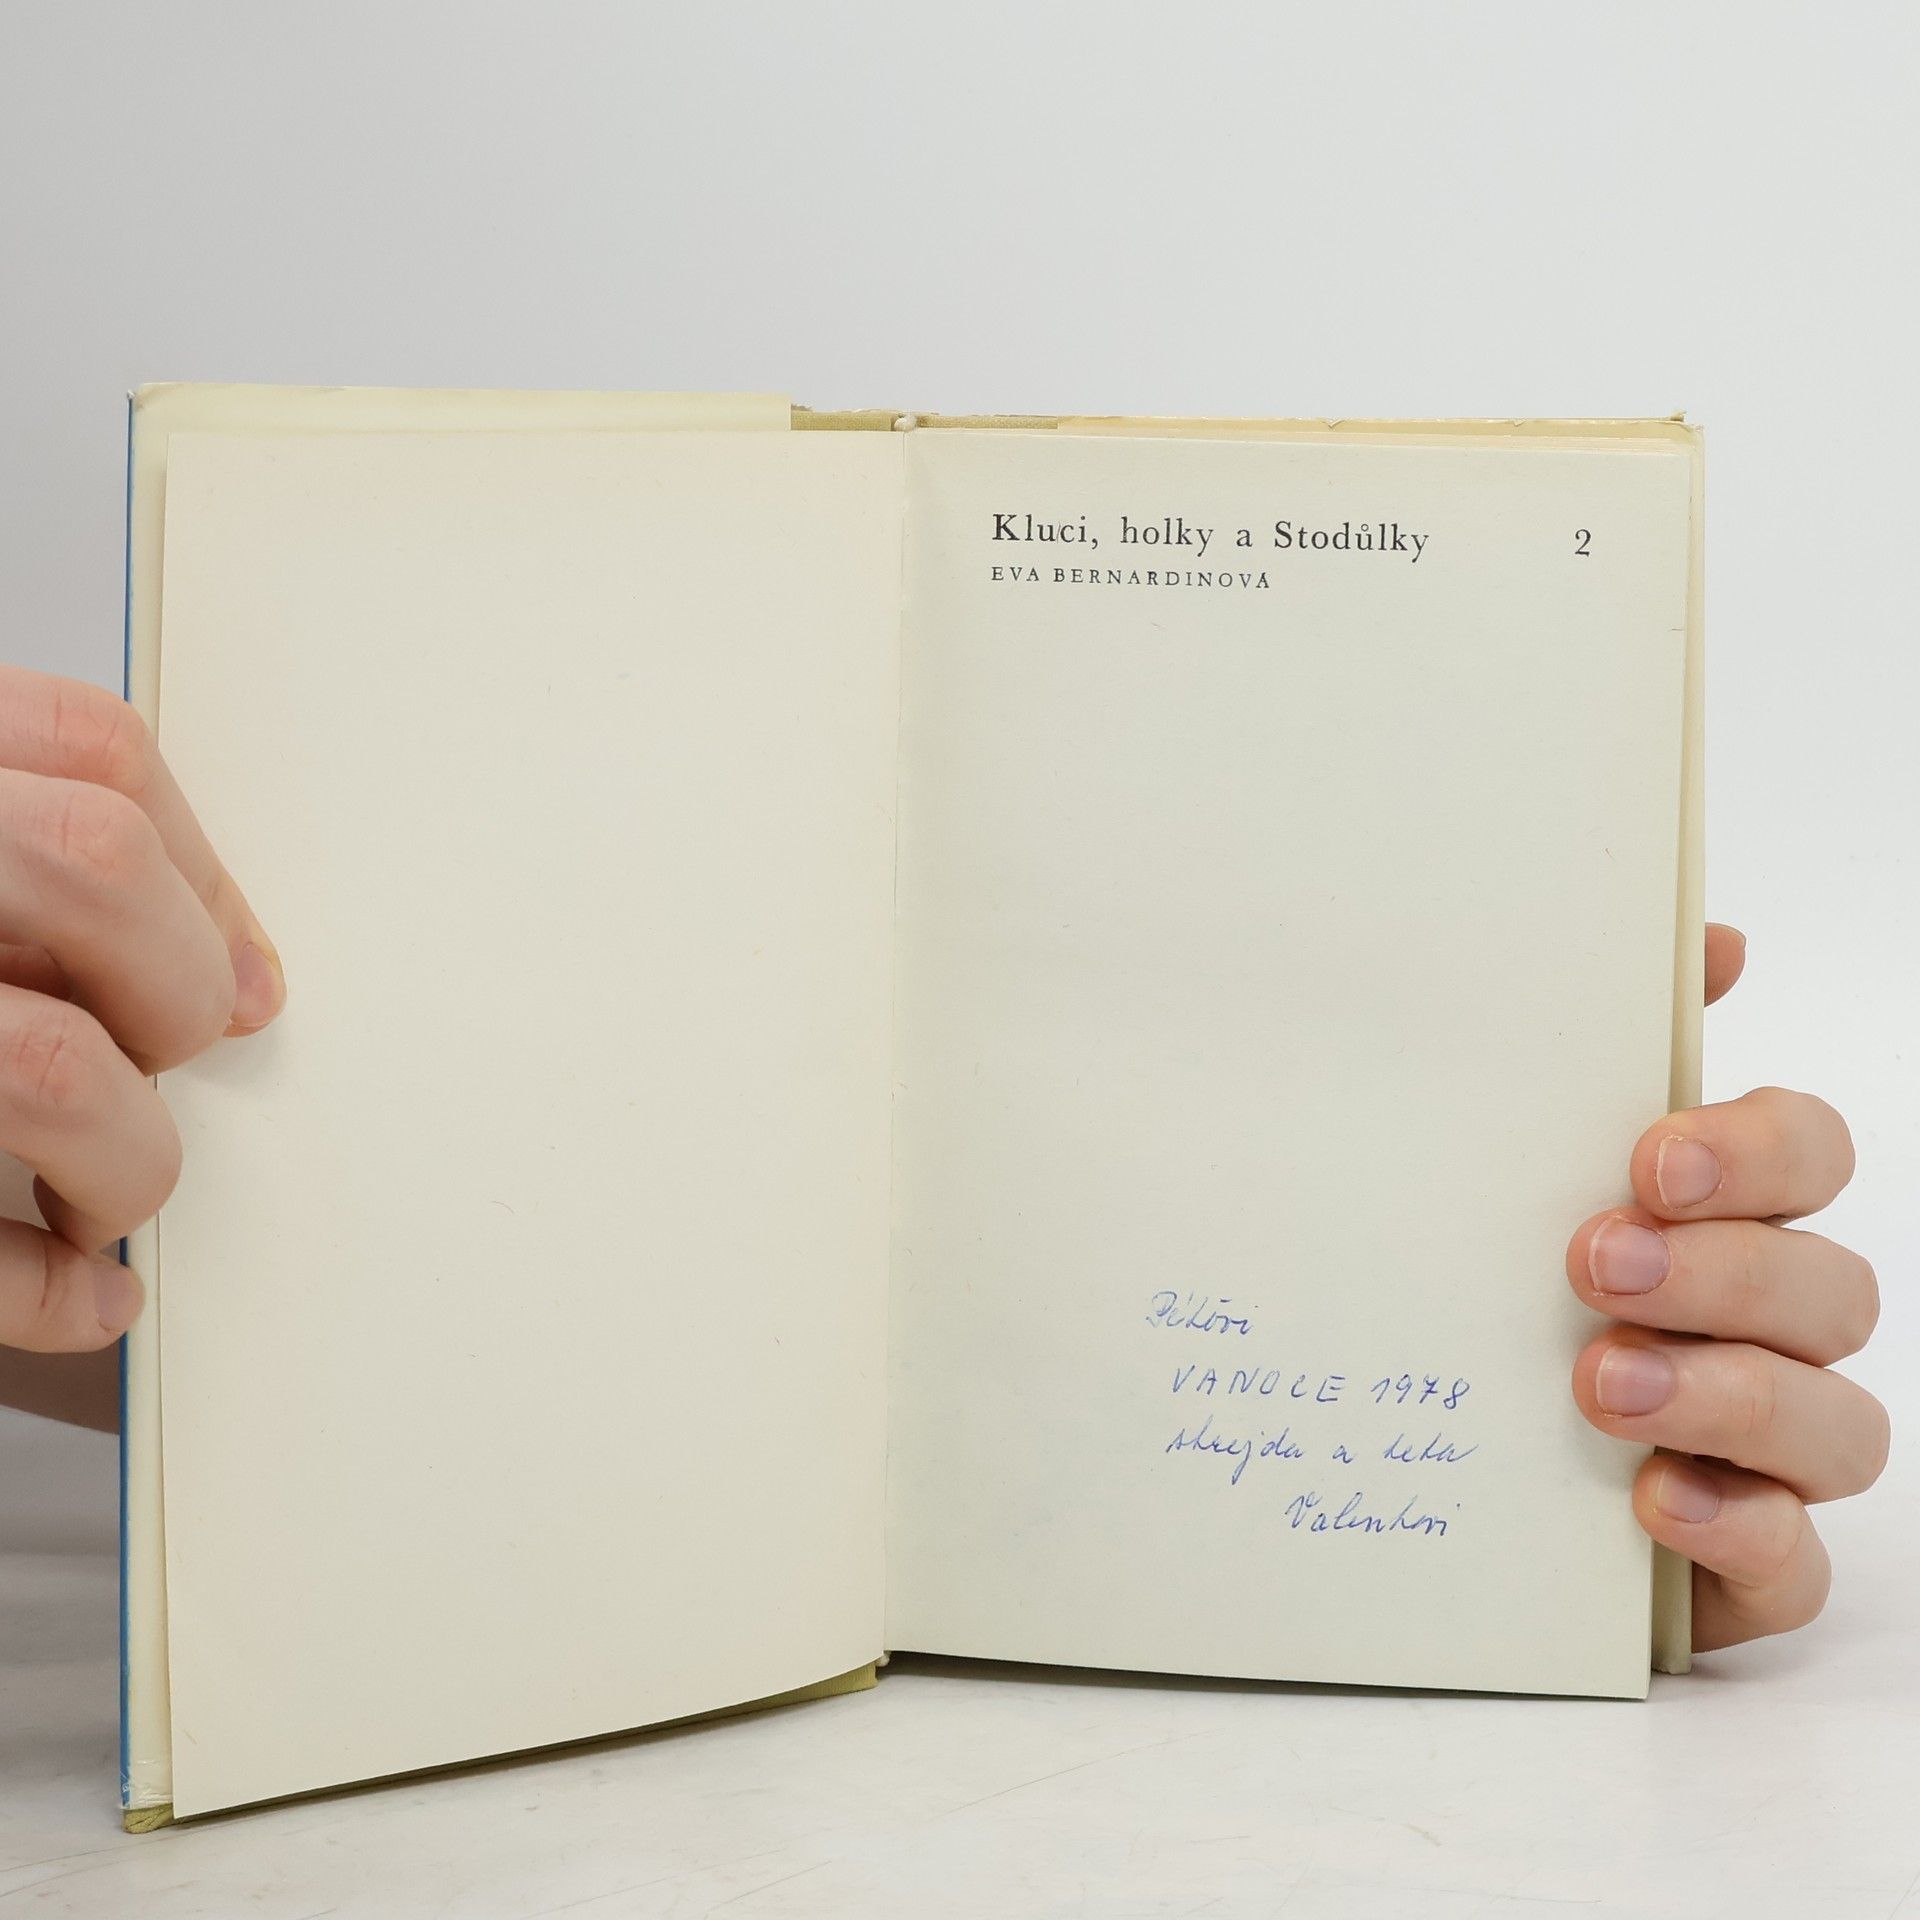 Kluci, holky a Stodůlky 2
EVA BERNARDINOVÁ
Péťovi
VANOCE 1978
strejda a teta
Valentovi